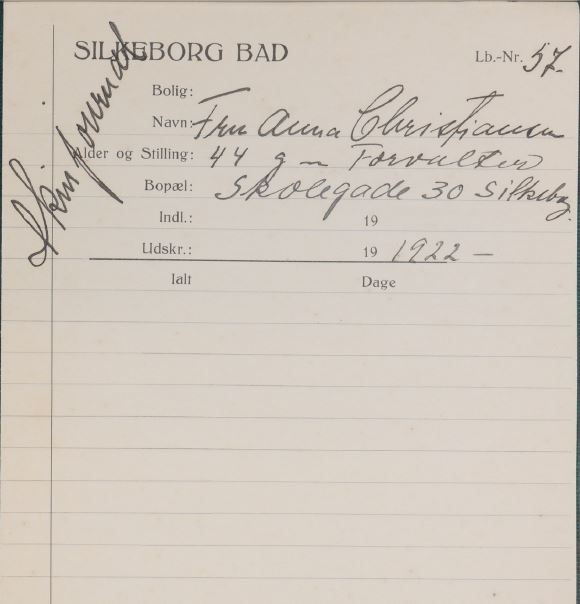 SILKEBORG BAD Lb.-Nr. 57.
Bolig: —
Navn: Fru Anna Christiansen
Alder og Stilling: 44 g m Forvalter
Bopæl: Skolegade 30 Silkeborg.
Indl.: 19
Udskr.: 19 1922 —
Ialt Dage